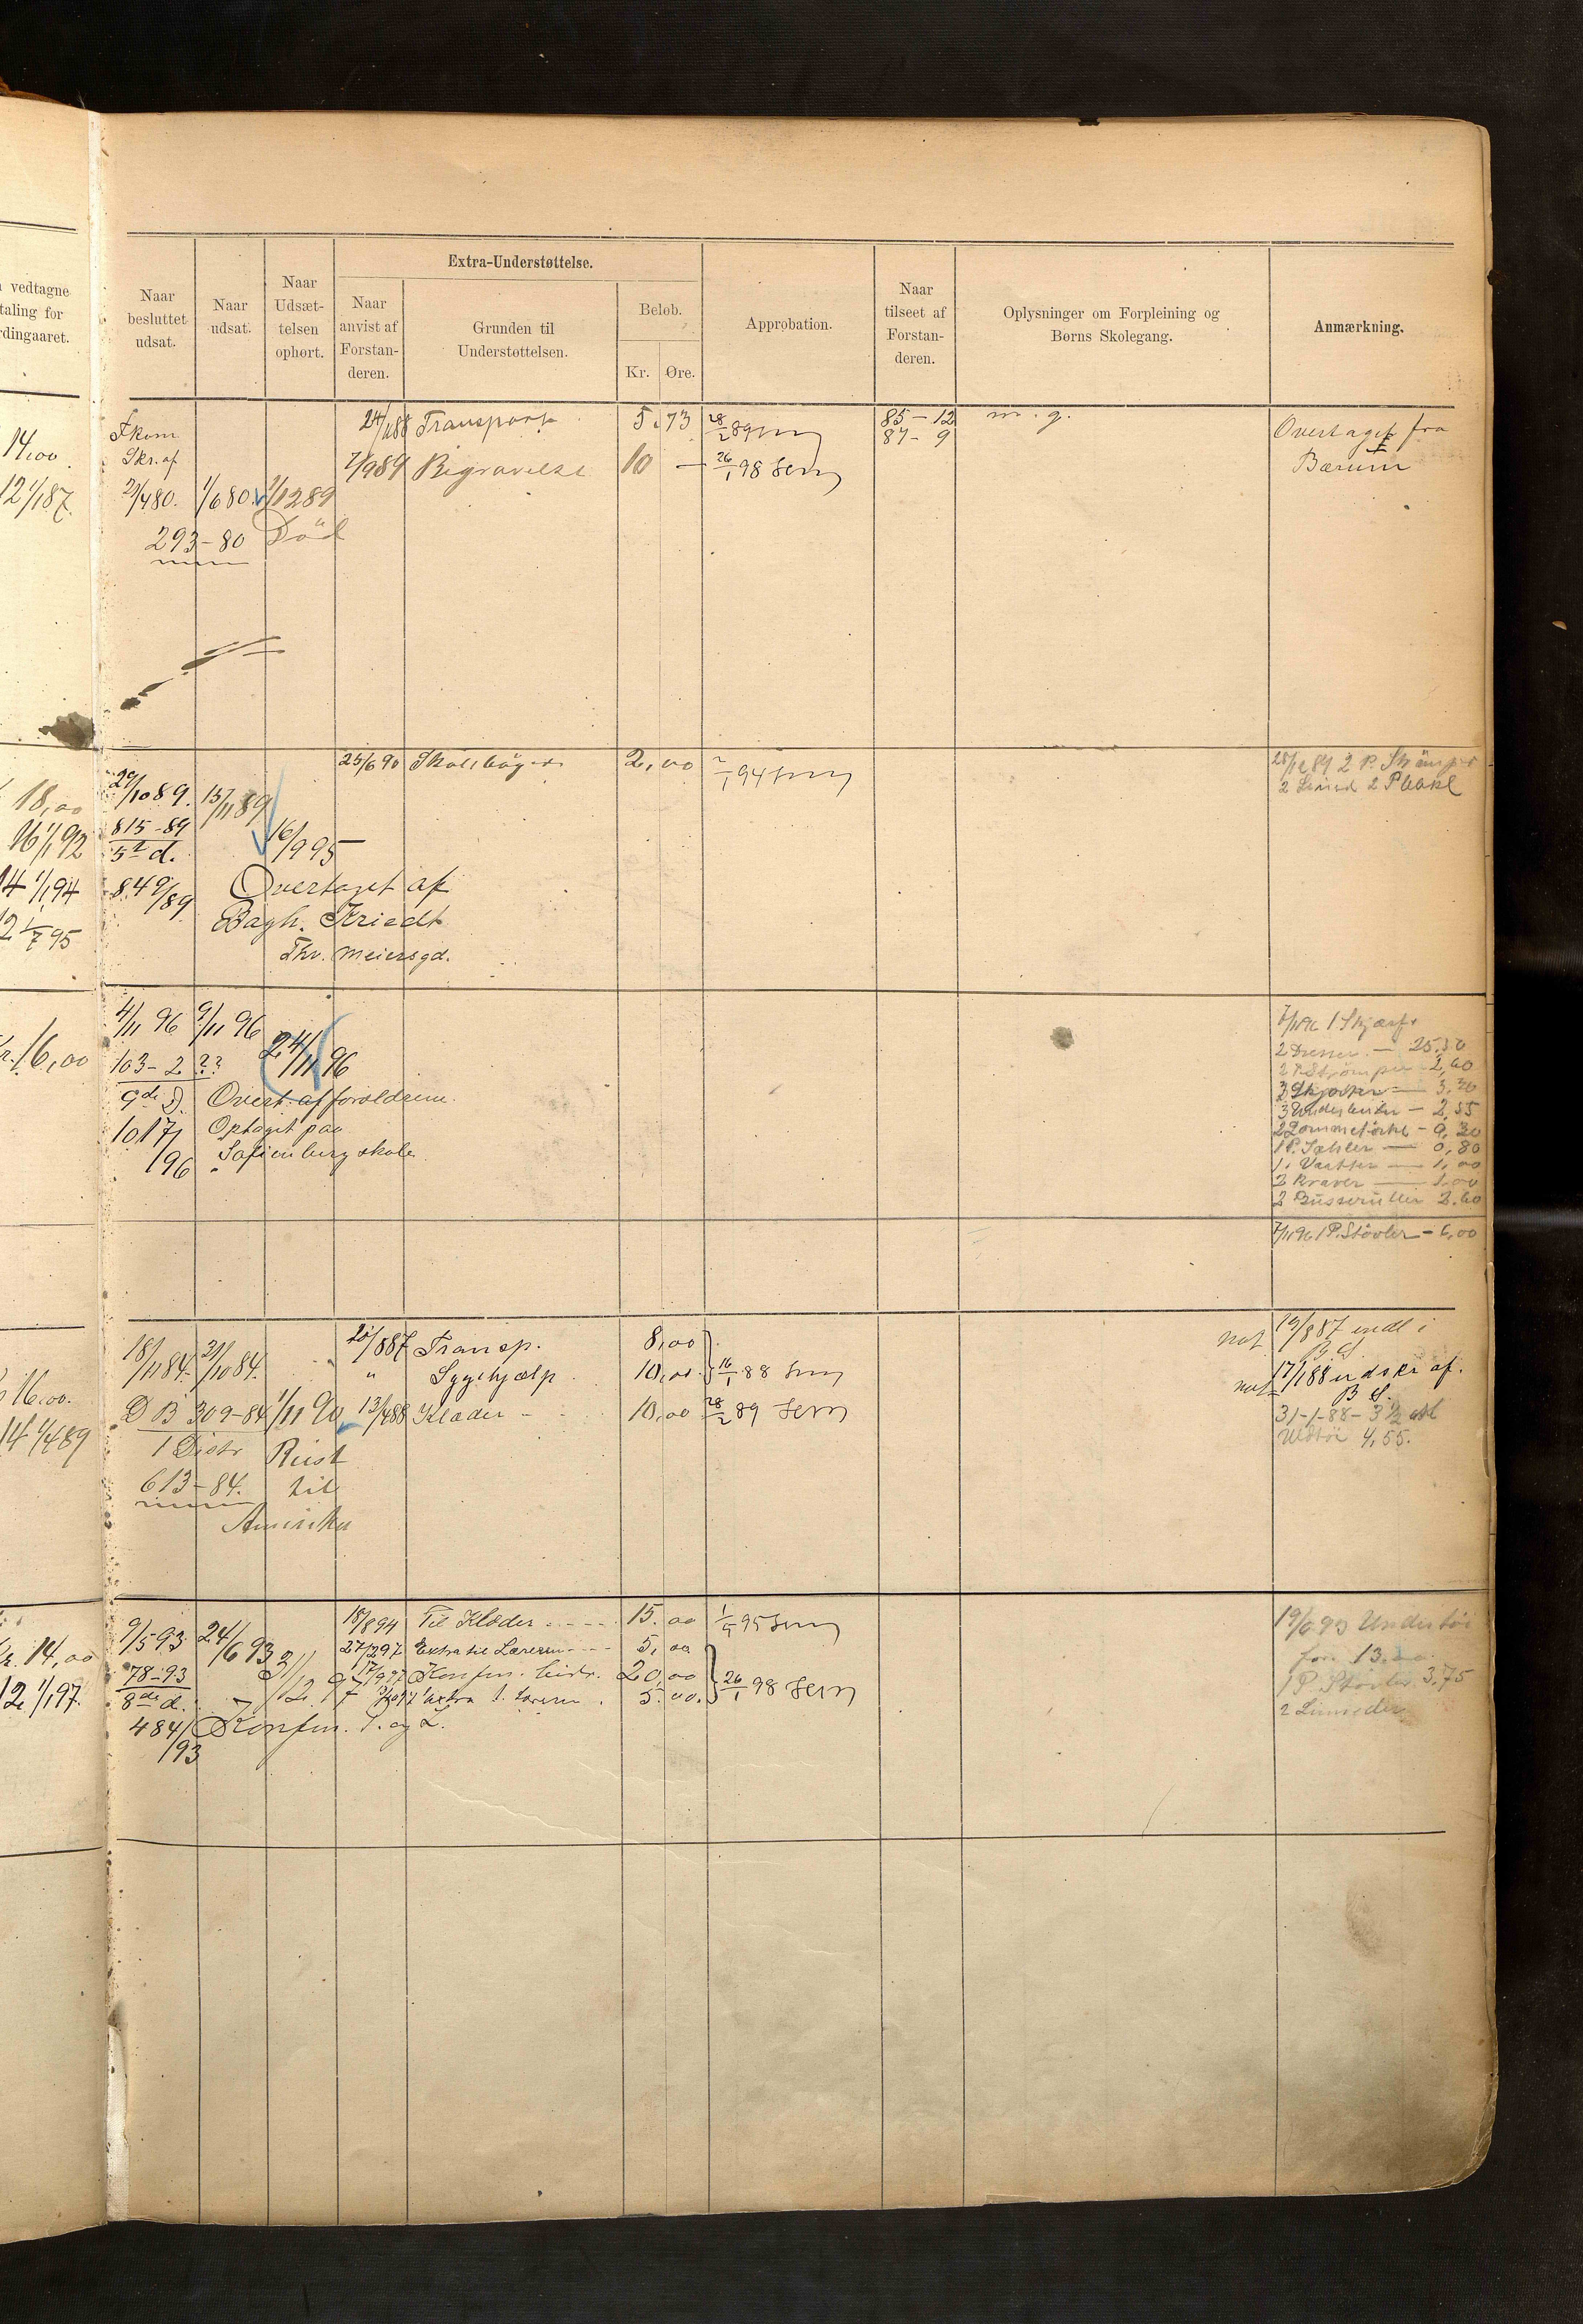 vedtagne
taling for
rdingaaret.
Naar besluttet udsat.
Naar udsat.
Naar Udsæt-telsen ophørt.
Extra-Understøttelse.
Naar anvist af Forstan-deren.
Grunden til Understøttelsen.
Beløb.
Kr. Øre.
Approbation.
Naar tilseet af Forstan-deren.
Oplysninger om Forpleining og Børns Skolegang.
Anmærkning.
14,00
12 1/1 87.
Fkom
Skr. af
29/4 80. 1/6 80. 1/12 89
293-80 Död
24/1 88 Transport 5,73 28/2 89
7/9 89 Begravelse 10 — 26/1 98
85-12 m. g.
87-9
Overtaget fra
Bærum
18,00
16 1/1 92
14 1/1 94
12 1/7 95
29/10 89. 15/11 89
815-89
5te d.
16/9 95
849/89 Overtaget af
Bagh. Kriedt
Thv. Meiersgd.
25/6 90 Skolebøger 2,00 2/1 94
2 P. Strömper
16,00
4/11 96 9/11 96
103-2 ?? 24/11 96
9de D. Overt. af forældrene.
1017/96 Optaget paa
Sofienberg skole
7/11 96 1 Skjærf
2 Dresser — 25,30
2 P. Strømper 2,60
2 Skjorter — 3,30
3 Underbuxer — 2,55
1 P. Sæler — 0,80
2 Kraver — 1,00
2 Busseruller 2.60
7/11 96 1 P. Støvler - 6,00
16,00.
14 1/4 89
18/11 84. 21/10 84.
DB 309-84 1/11 90
1 Distr Reist
613-84. til
Amerika
20/8 87 Transp. 8,00
" Sygehjælp 10,00 16/1 88
13/4 88 Klæder - 10,00 28/2 89
not 19/8 87 indl i
B S.
not 17/1 88 udskr af.
B S.
31-1-88 - 3 1/2
Uldtöi 4,55.
14,00
12 1/1 97.
9/5 93 24/6 93 31/12 97
78-93
8de d.
484/93 Konfm. P. og L.
18/8 94 Til Klæder 15.00 1/5 95
27/2 97 Extra til Læreren 5,00
17/9 97 Konfm. bidr. 20,00 26/1 98
extra t. læreren 5.00.
19/6 93 Undertöi
for 13.
1 P. Støvler 3,75